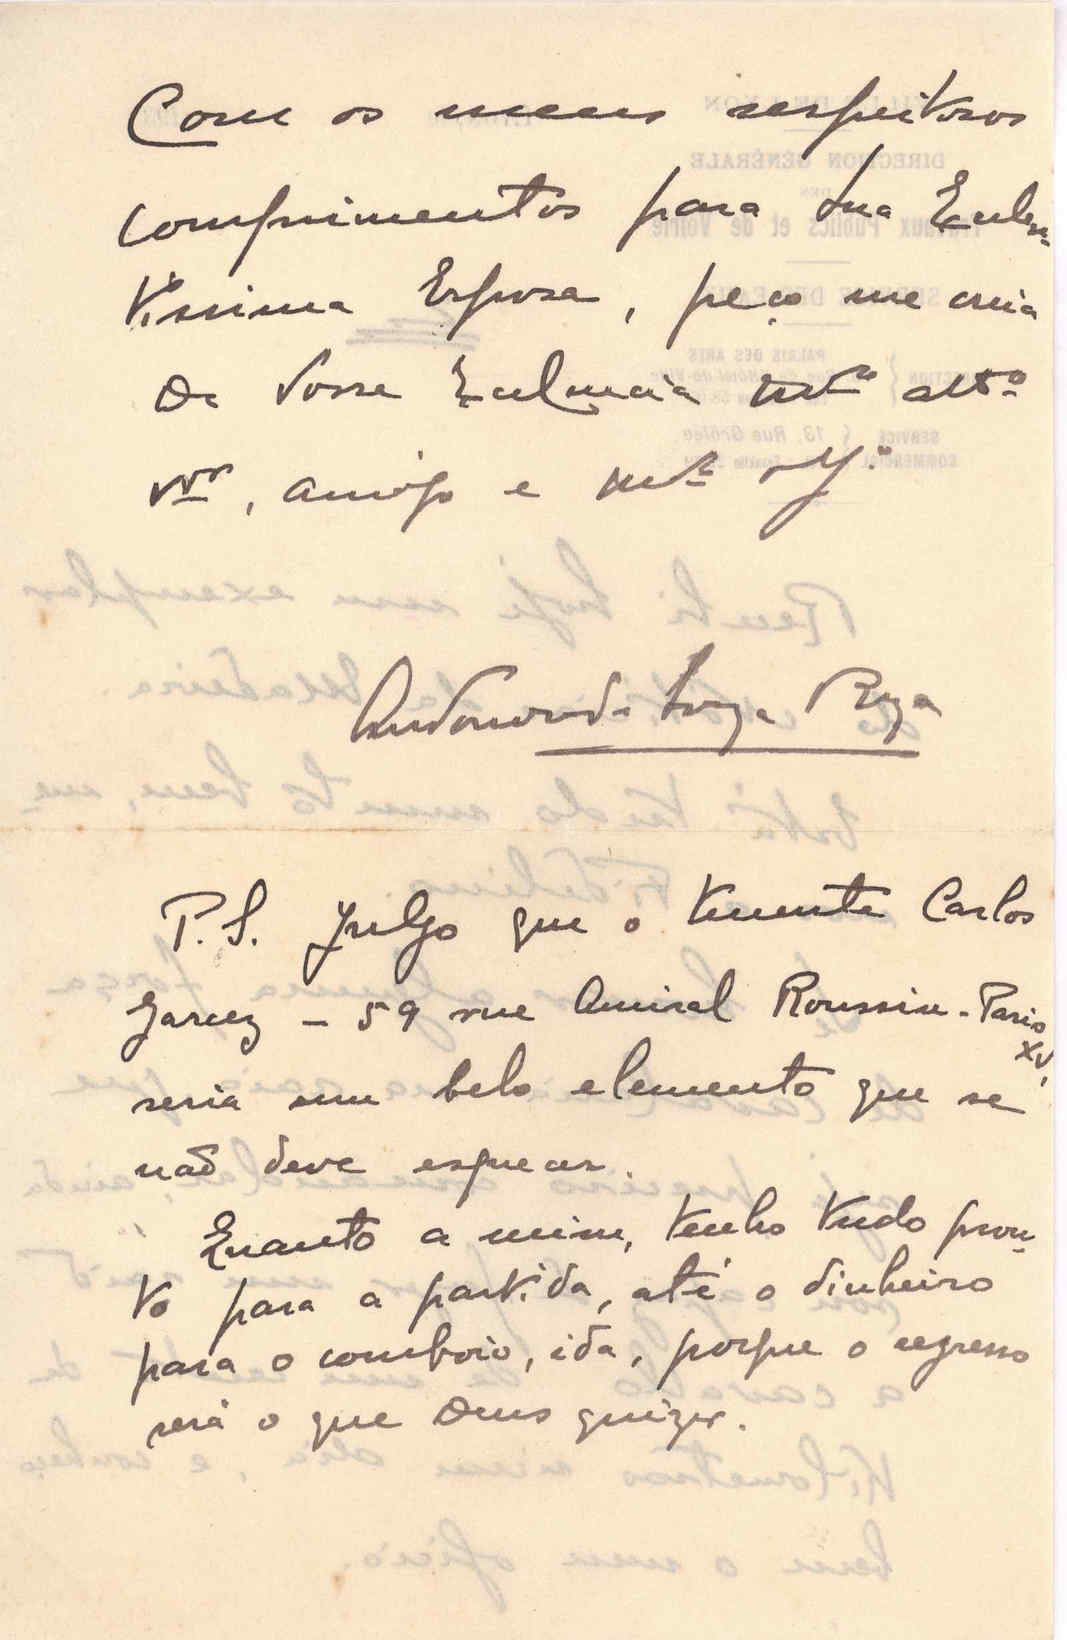 Com os meus respeitosos
comprimentos para Sua Excelen-
tissima Esposa, peço me creia
De Vossa Excelencia mtº attº
vor, amigo e mtº
Souza Roza
P.S. Julgo que o tenente Carlos
Garcez - 59 rue Amiral Roussin - Paris
XV,
seria um belo elemento que se
não deve esquecer.
Quanto a mim, tenho tudo pron-
to para a partida, até o dinheiro
para o comboio, ida, porque o regresso
será o que Deus quizer.